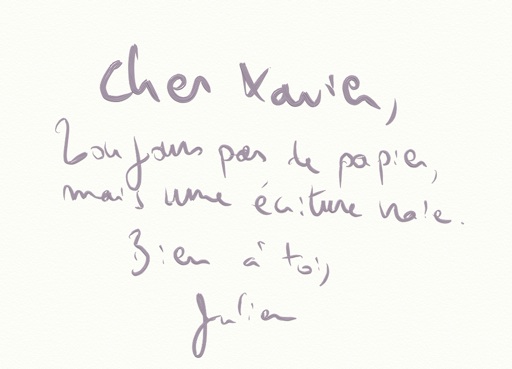 Cher Xavier,
Toujours pas de papier,
mais une écriture vraie.
Bien à toi,
Julien